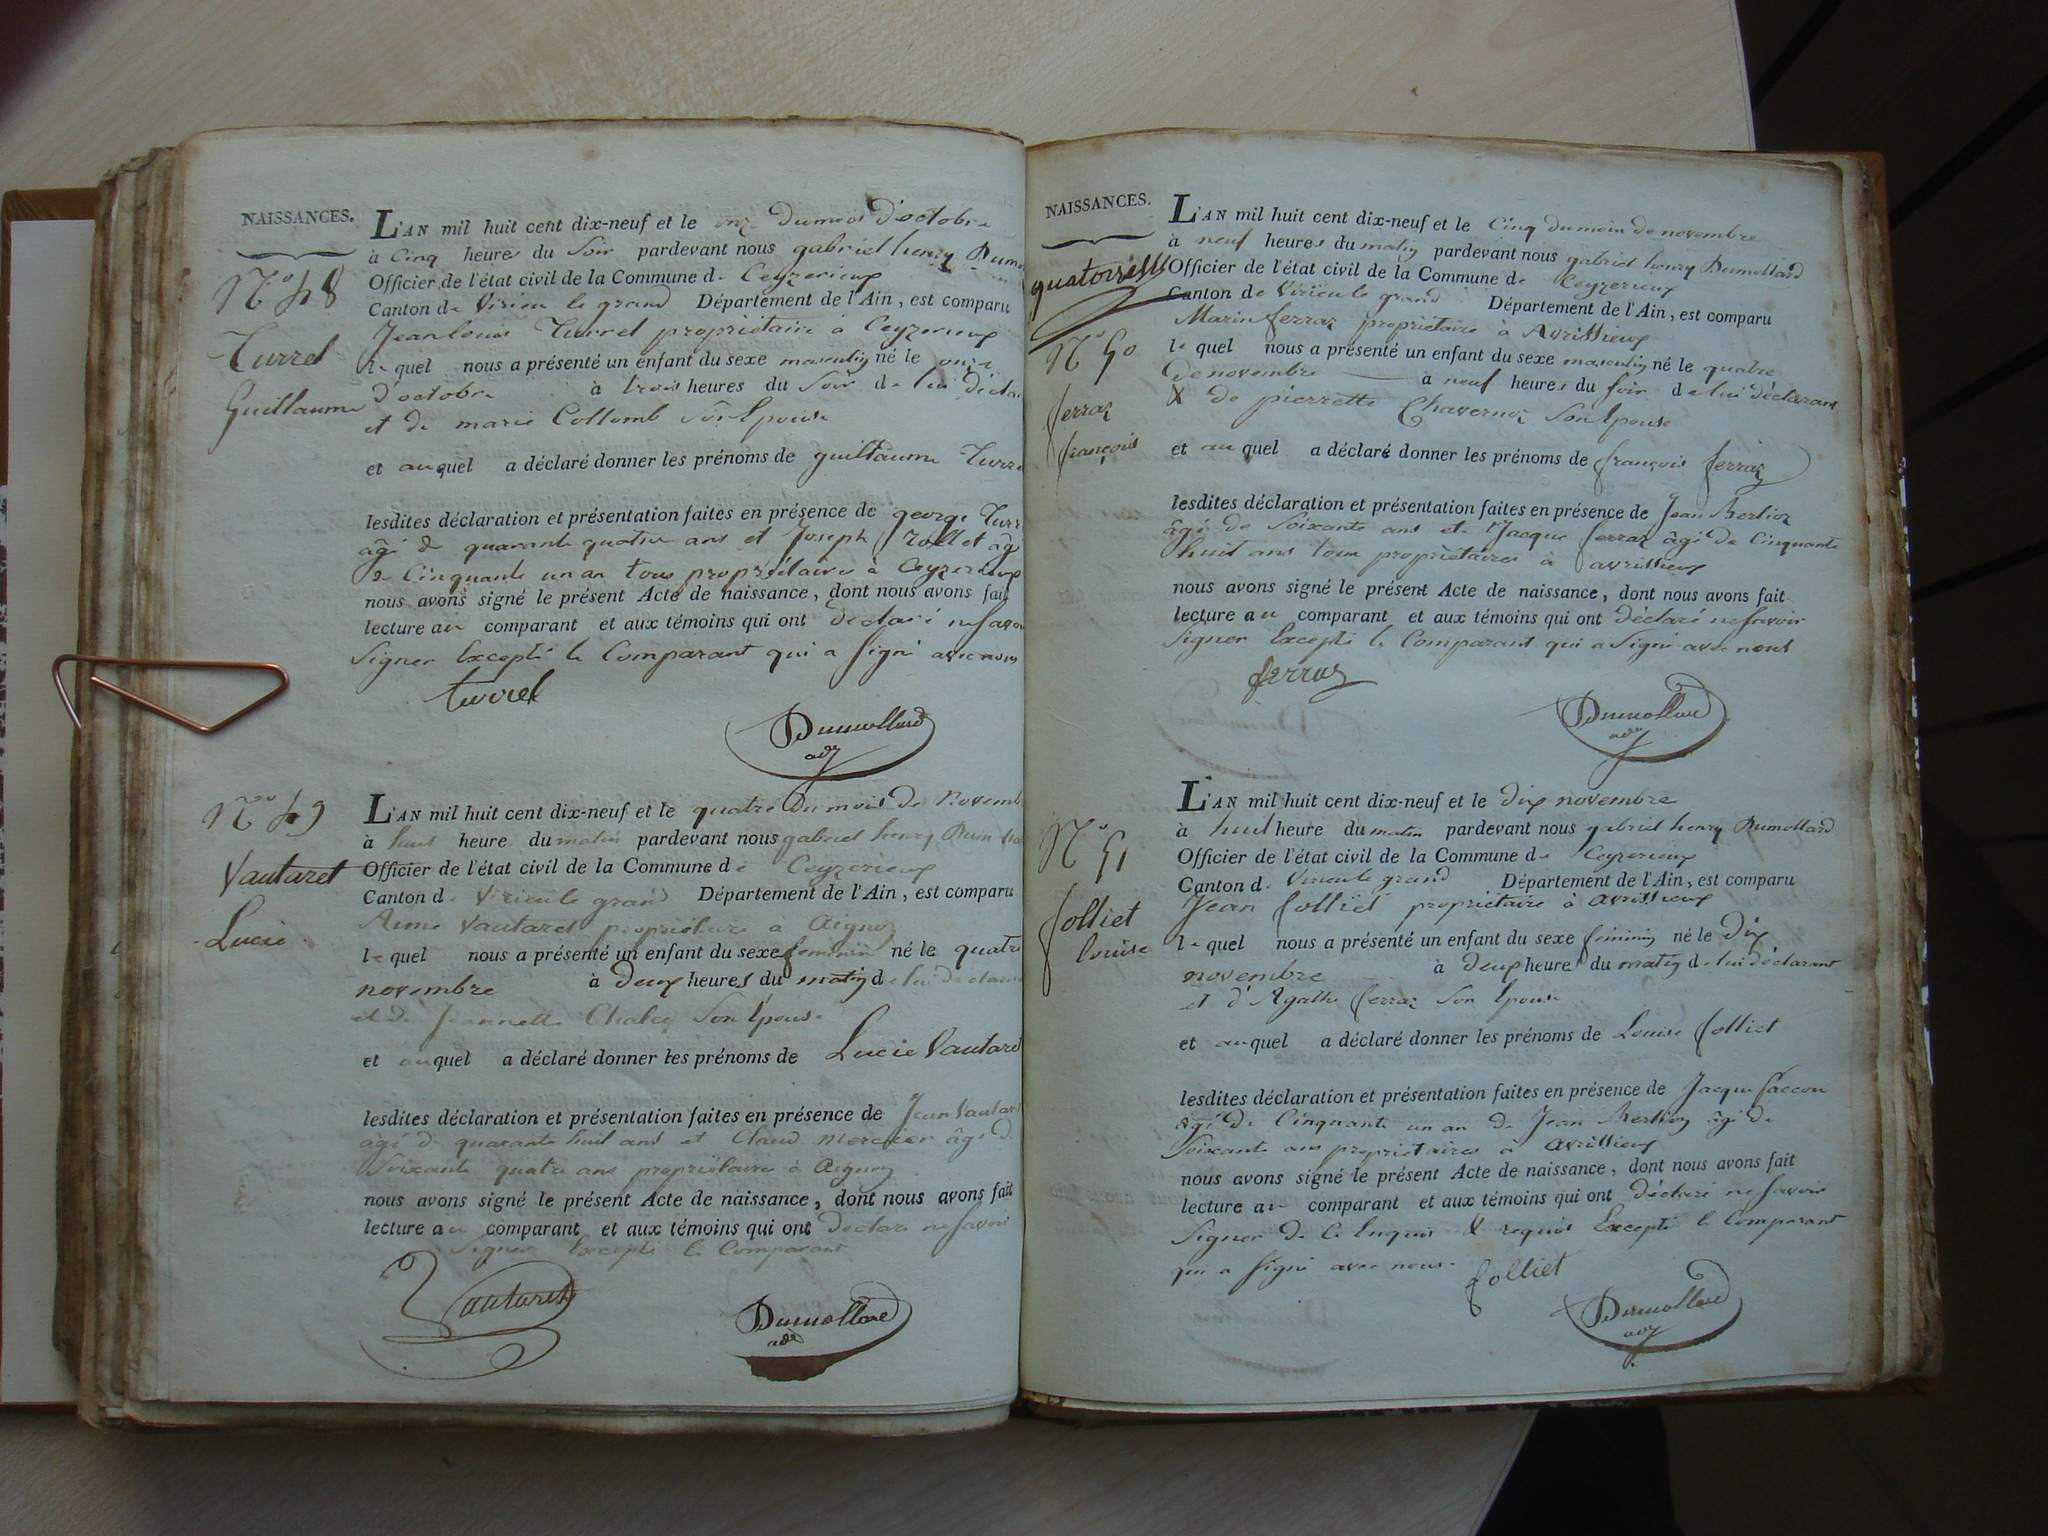 NAISSANCES.
L'AN mil huit cent dix-neuf et le onze du mois d'octobre
à Cinq heures du Soir pardevant nous gabriel henry Dumo
Officier de l'état civil de la Commune de Ceyzerieux
Canton de Virieu le grand Département de l'Ain, est comparu
Jean louis Turrel propriétaire à Ceyzerieux
le quel nous a présenté un enfant du sexe masculin né le onze
d'octobre à trois heures du Soir de lui décla
et de marie Collomb Son Epouse
et auquel a déclaré donner les prénoms de guillaume Turre
lesdites déclaration et présentation faites en présence de george Turr
âgé de quarante quatre ans et Joseph rollet âgé
de Cinquante un an tous propriétaires à Ceyzerieux
nous avons signé le présent Acte de naissance, dont nous avons fait
lecture au comparant et aux témoins qui ont déclaré ne savoir
Signer Excepté le Comparant qui a Signé avec nous
turrel
Dumollard
adj
N° 48
Turrel
Guillaume
N° 49
Vautaret
Lucie
L'AN mil huit cent dix-neuf et le quatre du mois de Novemb
à huit heure du matin pardevant nous gabriel henry Dumollar
Officier de l'état civil de la Commune de Ceyzerieux
Canton de Virieu le grand Département de l'Ain, est comparu
Aimé Vautaret propriétaire à Aignoz
le quel nous a présenté un enfant du sexe feminin né le quatre
novembre à Deux heures du matin de lui déclarant
et de Jeannette Chaley Son Epouse
et auquel a déclaré donner les prénoms de Lucie Vautaret
lesdites déclaration et présentation faites en présence de Jean Vautar
âgé de quarante huit ans et Claud mercier âgé de
Soixante quatre ans propriétaires à Aignoz
nous avons signé le présent Acte de naissance, dont nous avons fait
lecture au comparant et aux témoins qui ont declaré ne savoir
Signer Excepté le Comparant
Vautaret
Dumollard
adj
NAISSANCES.
quatorze
N° 50
ferraz
françois
L'AN mil huit cent dix-neuf et le Cinq du mois de novembre
à neuf heures du matin pardevant nous gabriel henry Dumollard
Officier de l'état civil de la Commune de Ceyzerieux
Canton de Virieu le grand Département de l'Ain, est comparu
Marin ferraz propriétaire à Avrissieux
le quel nous a présenté un enfant du sexe masculin né le quatre
de novembre à neuf heures du soir de lui déclarant
& de pierrette Chavernoz Son Epouse
et au quel a déclaré donner les prénoms de françois ferraz
lesdites déclaration et présentation faites en présence de Jean Berlioz
âgé de Soixante ans et Jacque ferraz âgé de Cinquante
huit ans tous propriétaires à avrissieux
nous avons signé le présent Acte de naissance, dont nous avons fait
lecture au comparant et aux témoins qui ont déclaré ne savoir
Signer Excepté le Comparant qui a Signé avec nous
ferraz
Dumollard
adj
N° 51
folliet
louise
L'AN mil huit cent dix-neuf et le dix novembre
à huit heure du matin pardevant nous gabriel henry Dumollard
Officier de l'état civil de la Commune de Ceyzerieux
Canton de Virieu le grand Département de l'Ain, est comparu
Jean folliet propriétaire à avrissieux
le quel nous a présenté un enfant du sexe féminin né le Dix
novembre à deux heures du matin de lui déclarant
et d'Agathe ferraz Son Epouse
et auquel a déclaré donner les prénoms de Louise folliet
lesdites déclaration et présentation faites en présence de Jacque faccon
âgé de Cinquante un an de Jean Berlioz âgé de
Soixante ans propriétaires à avrissieux
nous avons signé le présent Acte de naissance, dont nous avons fait
lecture au comparant et aux témoins qui ont déclaré ne savoir
Signer de Ce Enquis & requis Excepté le Comparant
qui a signé avec nous
folliet
Dumollard
adj